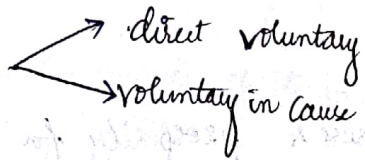 direct voluntary
voluntary in cause